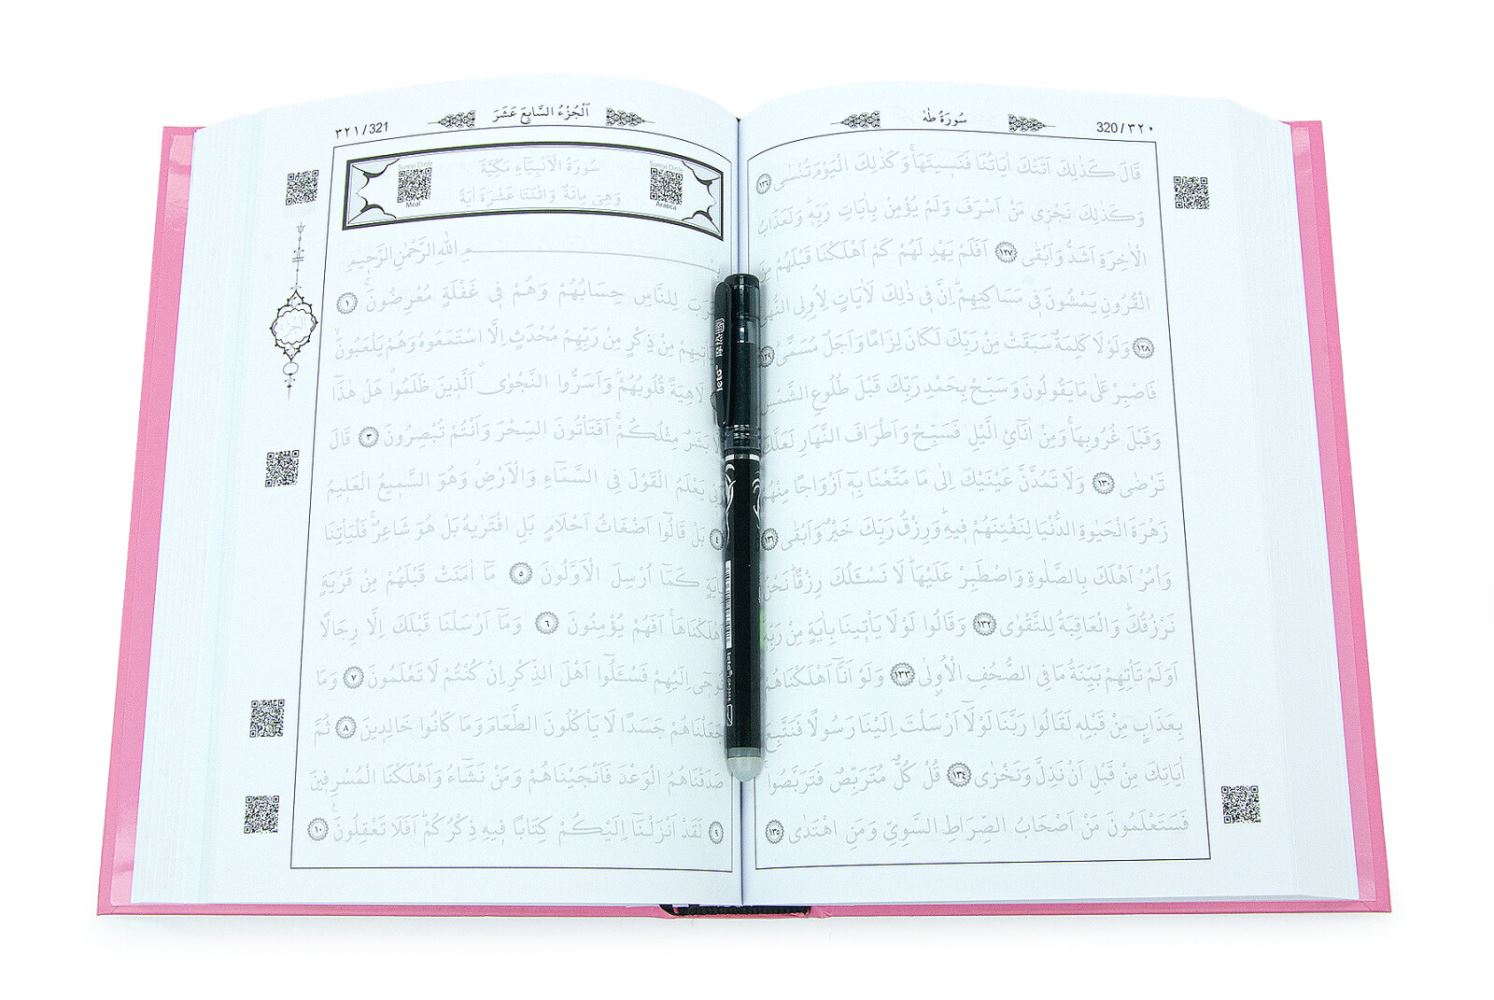 ٣٢٠ / 320
سُورَةُ طٰهٰ
قَالَ كَذٰلِكَ اَتَتْكَ اٰيَاتُنَا فَنَسِيتَهَاۚ وَكَذٰلِكَ الْيَوْمَ تُنْسٰى ١٢٦
وَكَذٰلِكَ نَجْزِى مَنْ اَسْرَفَ وَلَمْ يُؤْمِنْ بِاٰيَاتِ رَبِّهِۜ وَلَعَذَابُ
الْاٰخِرَةِ اَشَدُّ وَاَبْقٰى ١٢٧ اَفَلَمْ يَهْدِ لَهُمْ كَمْ اَهْلَكْنَا قَبْلَهُمْ
الْقُرُونِ يَمْشُونَ فِى مَسَاكِنِهِمْۜ اِنَّ فِى ذٰلِكَ لَاٰيَاتٍ لِاُولِى
١٢٨ وَلَوْلَا كَلِمَةٌ سَبَقَتْ مِنْ رَبِّكَ لَكَانَ لِزَامًا وَاَجَلٌ مُسَمًّى ١٢٩
فَاصْبِرْ عَلٰى مَا يَقُولُونَ وَسَبِّحْ بِحَمْدِ رَبِّكَ قَبْلَ طُلُوعِ الشَّمْسِ
وَقَبْلَ غُرُوبِهَاۚ وَمِنْ اٰنَٓائِ الَّيْلِ فَسَبِّحْ وَاَطْرَافَ النَّهَارِ لَعَلَّكَ
تَرْضٰى ١٣٠ وَلَا تَمُدَّنَّ عَيْنَيْكَ اِلٰى مَا مَتَّعْنَا بِهٓ اَزْوَاجًا مِنْهُمْ
زَهْرَةَ الْحَيٰوةِ الدُّنْيَا لِنَفْتِنَهُمْ فِيهِۜ وَرِزْقُ رَبِّكَ خَيْرٌ وَاَبْقٰى ١٣١
وَأْمُرْ اَهْلَكَ بِالصَّلٰوةِ وَاصْطَبِرْ عَلَيْهَاۜ لَا نَسْـَٔلُكَ رِزْقًاۜ نَحْنُ
نَرْزُقُكَۜ وَالْعَاقِبَةُ لِلتَّقْوٰى ١٣٢ وَقَالُوا لَوْلَا يَأْتِينَا بِاٰيَةٍ مِنْ رَبِّهِ
اَوَلَمْ تَأْتِهِمْ بَيِّنَةُ مَا فِى الصُّحُفِ الْاُولٰى ١٣٣ وَلَوْ اَنَّٓا اَهْلَكْنَاهُمْ
بِعَذَابٍ مِنْ قَبْلِهِ لَقَالُوا رَبَّنَا لَوْلَٓا اَرْسَلْتَ اِلَيْنَا رَسُولًا فَنَتَّبِعَ
اٰيَاتِكَ مِنْ قَبْلِ اَنْ نَذِلَّ وَنَخْزٰى ١٣٤ قُلْ كُلٌّ مُتَرَبِّصٌ فَتَرَبَّصُوا
فَسَتَعْلَمُونَ مَنْ اَصْحَابُ الصِّرَاطِ السَّوِيِّ وَمَنِ اهْتَدٰى ١٣٥
اَلْجُزْءُ السَّابِعَ عَشَرَ
٣٢١ / 321
سُورَةُ الْاَنْبِيَٓاءِ مَكِّيَّةٌ
وَهِىَ مِائَةٌ وَاثْنَتَا عَشْرَةَ اٰيَةً
Meal
Arapça
اللّٰهِ الرَّحْمٰنِ الرَّحِيمِ
لِلنَّاسِ حِسَابُهُمْ وَهُمْ فِى غَفْلَةٍ مُعْرِضُونَۚ ١
مِنْ ذِكْرٍ مِنْ رَبِّهِمْ مُحْدَثٍ اِلَّا اسْتَمَعُوهُ وَهُمْ يَلْعَبُونَ
لَاهِيَةً قُلُوبُهُمْۜ وَاَسَرُّوا النَّجْوٰىۗ اَلَّذِينَ ظَلَمُواۗ هَلْ هٰذَٓا
بَشَرٌ مِثْلُكُمْۚ اَفَتَأْتُونَ السِّحْرَ وَاَنْتُمْ تُبْصِرُونَ ٣ قَالَ
يَعْلَمُ الْقَوْلَ فِى السَّمَٓاءِ وَالْاَرْضِۘ وَهُوَ السَّمِيعُ الْعَلِيمُ
٤ بَلْ قَالُٓوا اَضْغَاثُ اَحْلَامٍ بَلِ افْتَرٰيهُ بَلْ هُوَ شَاعِرٌۚ فَلْيَأْتِنَا
كَمَٓا اُرْسِلَ الْاَوَّلُونَ ٥ مَٓا اٰمَنَتْ قَبْلَهُمْ مِنْ قَرْيَةٍ
اَهْلَكْنَاهَاۚ اَفَهُمْ يُؤْمِنُونَ ٦ وَمَٓا اَرْسَلْنَا قَبْلَكَ اِلَّا رِجَالًا
اِلَيْهِمْ فَسْـَٔلُٓوا اَهْلَ الذِّكْرِ اِنْ كُنْتُمْ لَا تَعْلَمُونَ ٧ وَمَا
جَعَلْنَاهُمْ جَسَدًا لَا يَأْكُلُونَ الطَّعَامَ وَمَا كَانُوا خَالِدِينَ ٨ ثُمَّ
صَدَقْنَاهُمُ الْوَعْدَ فَاَنْجَيْنَاهُمْ وَمَنْ نَشَٓاءُ وَاَهْلَكْنَا الْمُسْرِفِينَ
٩ لَقَدْ اَنْزَلْنَٓا اِلَيْكُمْ كِتَابًا فِيهِ ذِكْرُكُمْۜ اَفَلَا تَعْقِلُونَ۟ ١٠
leto
leto